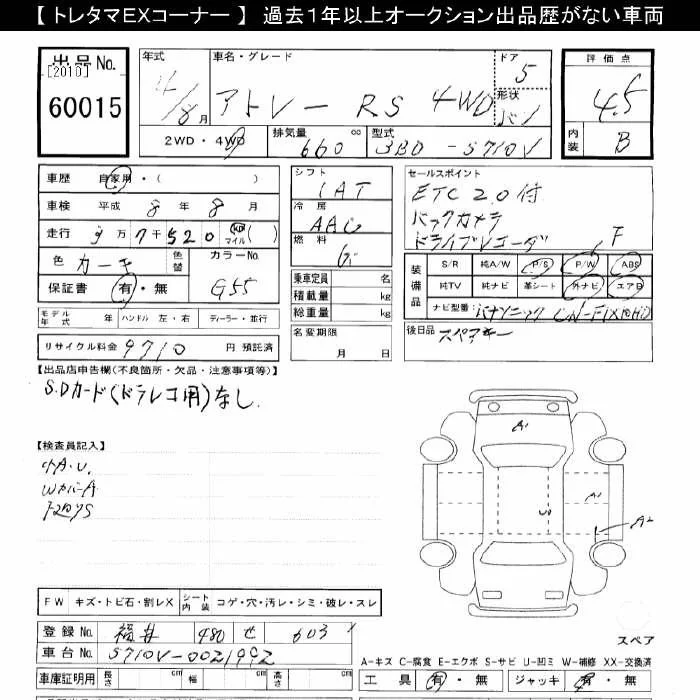 【 トレタマEXコーナー 】 過去1年以上オークション出品歴がない車両
出品No. [2010] 60015
年式 8月
車名・グレード アトレー RS 4WD
ドア 5
形状 バン
評価点 4.5
内装 B
2WD・4WD
排気量 660 cc
型式 3BD - S710V
車歴 自家用・( )
車検 平成 8年 8月
走行 9万7千520 km マイル( )
色 カーキ 色替
カラーNo. G55
保証書 有・無
シフト IAT
冷房 AAC
燃料
乗車定員 名
積載量 kg
総重量 kg
名変期限
月 日
セールスポイント
ETC2.0付
バックカメラ
ドライブレコーダ F
装備品 S/R 純A/W P/S P/W ABS
純TV 純ナビ 革シート 外ナビ エアB
ナビ型番 パナソニック CN-F1X10HD
後日品 スペアキー
モデル年式 年 ハンドル 左・右 ディーラー・並行
リサイクル料金 9710 円 預託済
【出品店申告欄(不良箇所・欠品・注意事項等)】
S.Dカード(ドラレコ用)なし.
【検査員記入】
小A.U.
WカバーA
A1
A1
A2
FW キズ・トビ石・割レX シート内装 コゲ・穴・汚レ・シミ・破レ・スレ
登録No. 福井 480 せ 603
車台No. S710V-0021992
車庫証明用 長さ cm 幅 cm 高さ cm
スペア
A-キズ C-腐食 E-エクボ S-サビ U-凹ミ W-補修 XX-交換済
工具 有・無 ジャッキ 有・無